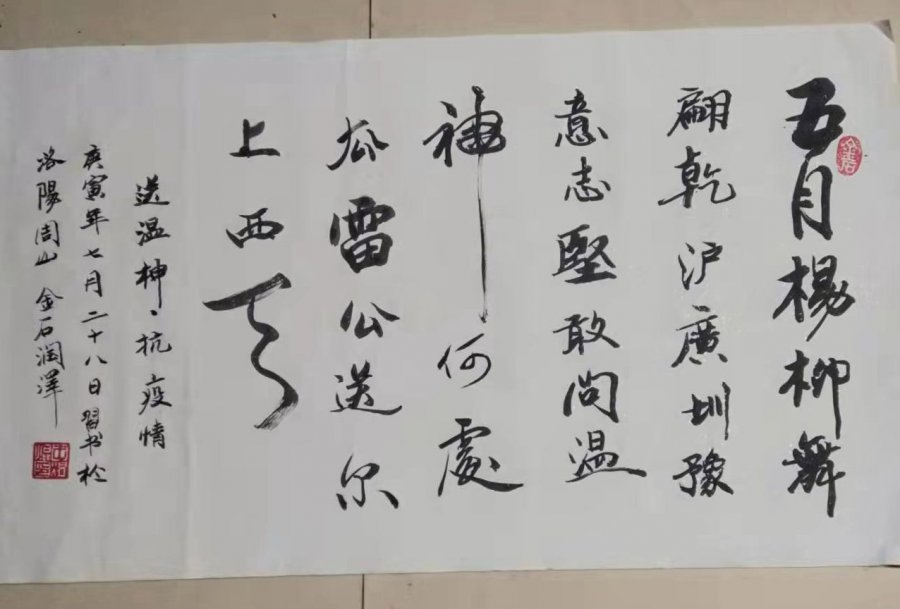 五月楊柳舞
翩乾沪廣圳豫
意志堅敢问温
神何處
瓜雷公送尔
上西天
送温神、抗疫情
庚寅年七月二十八日習书於
洛陽周山 金石润澤